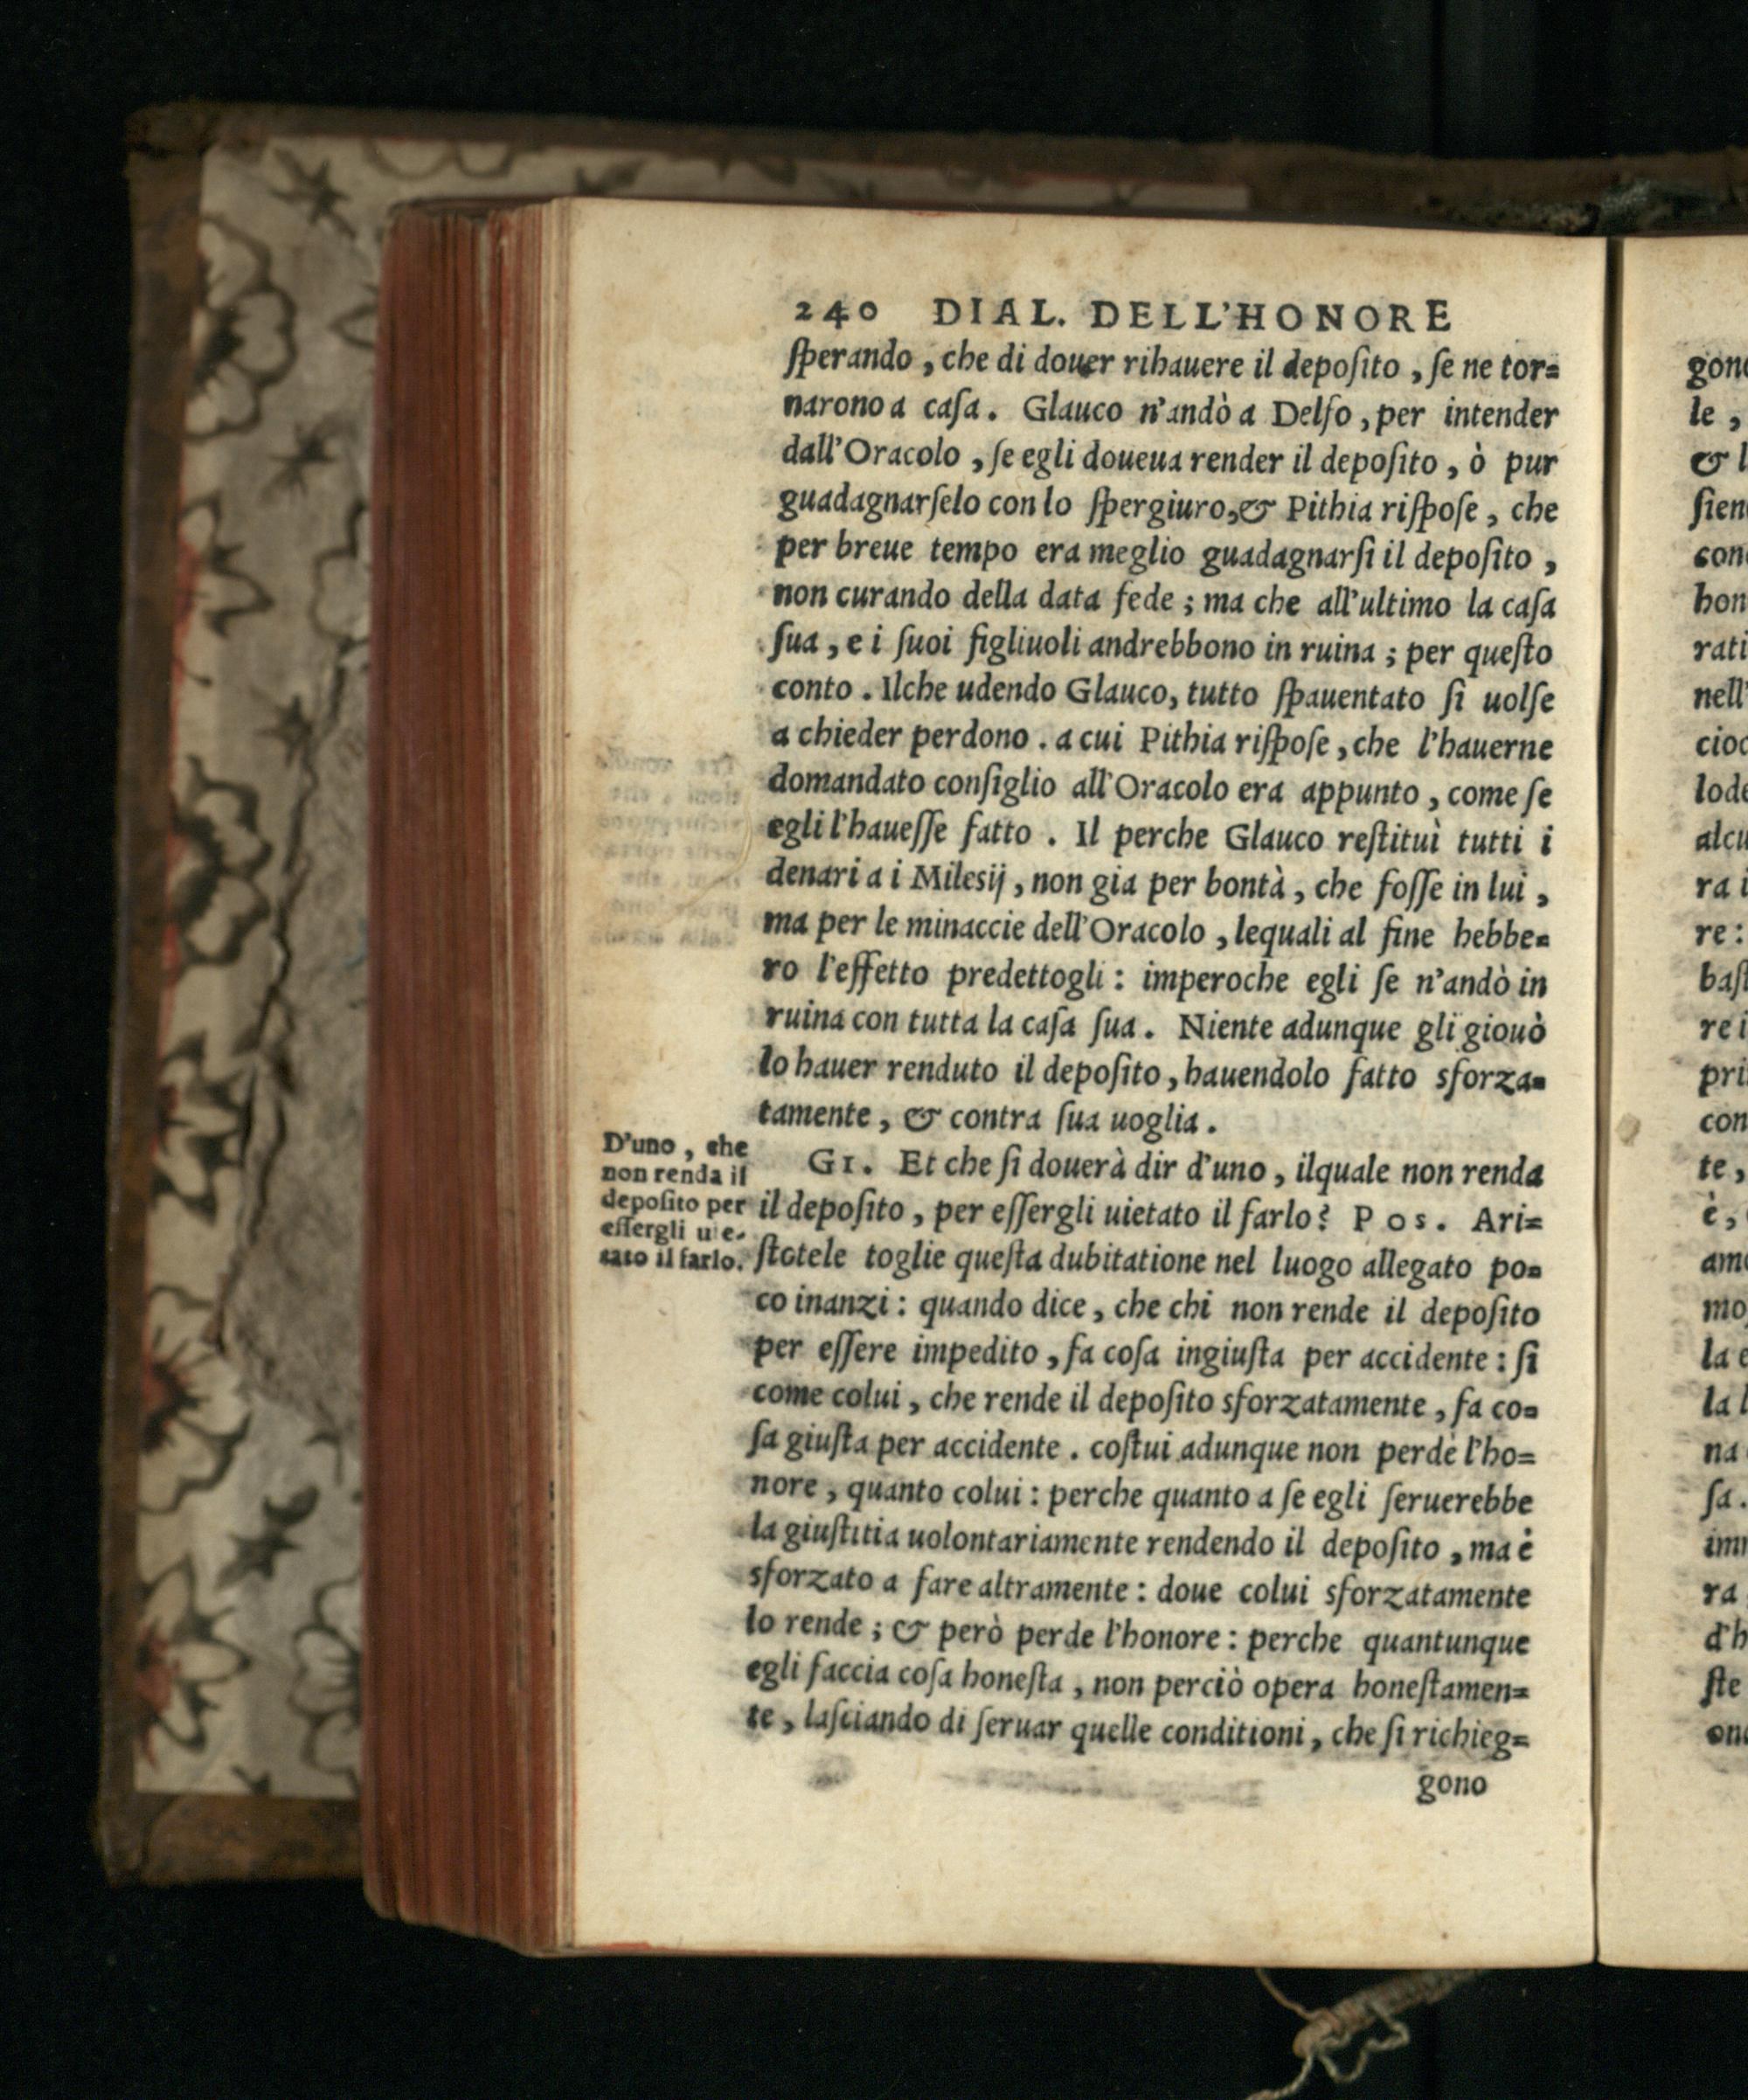 240 DIAL. DELL'HONORE
ſperando, che di douer rihauere il depoſito, ſe ne tor=
narono a caſa. Glauco n'andò a Delfo, per intender
dall'Oracolo, ſe egli doueua render il depoſito, ò pur
guadagnarſelo con lo ſpergiuro, & Pithia riſpoſe, che
per breue tempo era meglio guadagnarſi il depoſito,
non curando della data fede; ma che all'ultimo la caſa
ſua, e i ſuoi figliuoli andrebbono in ruina; per queſto
conto. Ilche udendo Glauco, tutto ſpauentato ſi uolſe
a chieder perdono. a cui Pithia riſpoſe, che l'hauerne
domandato conſiglio all'Oracolo era appunto, come ſe
egli l'haueſſe fatto. Il perche Glauco reſtituì tutti i
denari a i Milesij, non gia per bontà, che foſſe in lui,
ma per le minaccie dell'Oracolo, lequali al fine hebbe=
ro l'effetto predettogli: imperoche egli ſe n'andò in
ruina con tutta la caſa ſua. Niente adunque gli giouò
lo hauer renduto il depoſito, hauendolo fatto sforza=
tamente, & contra ſua uoglia.
D'uno, che
non renda il
depoſito per
eſſergli uie-
tato il farlo.
GI. Et che ſi douerà dir d'uno, ilquale non renda
il depoſito, per eſſergli uietato il farlo? POS. Ari=
ſtotele toglie queſta dubitatione nel luogo allegato po=
co inanzi: quando dice, che chi non rende il depoſito
per eſſere impedito, fa coſa ingiuſta per accidente: ſi
come colui, che rende il depoſito sforzatamente, fa co=
ſa giuſta per accidente. coſtui adunque non perde l'ho=
nore, quanto colui: perche quanto a ſe egli ſeruerebbe
la giuſtitia uolontariamente rendendo il depoſito, ma è
sforzato a fare altramente: doue colui sforzatamente
lo rende; & però perde l'honore: perche quantunque
egli faccia coſa honeſta, non perciò opera honeſtamen=
te, laſciando di ſeruar quelle conditioni, che ſi richieg=
gono